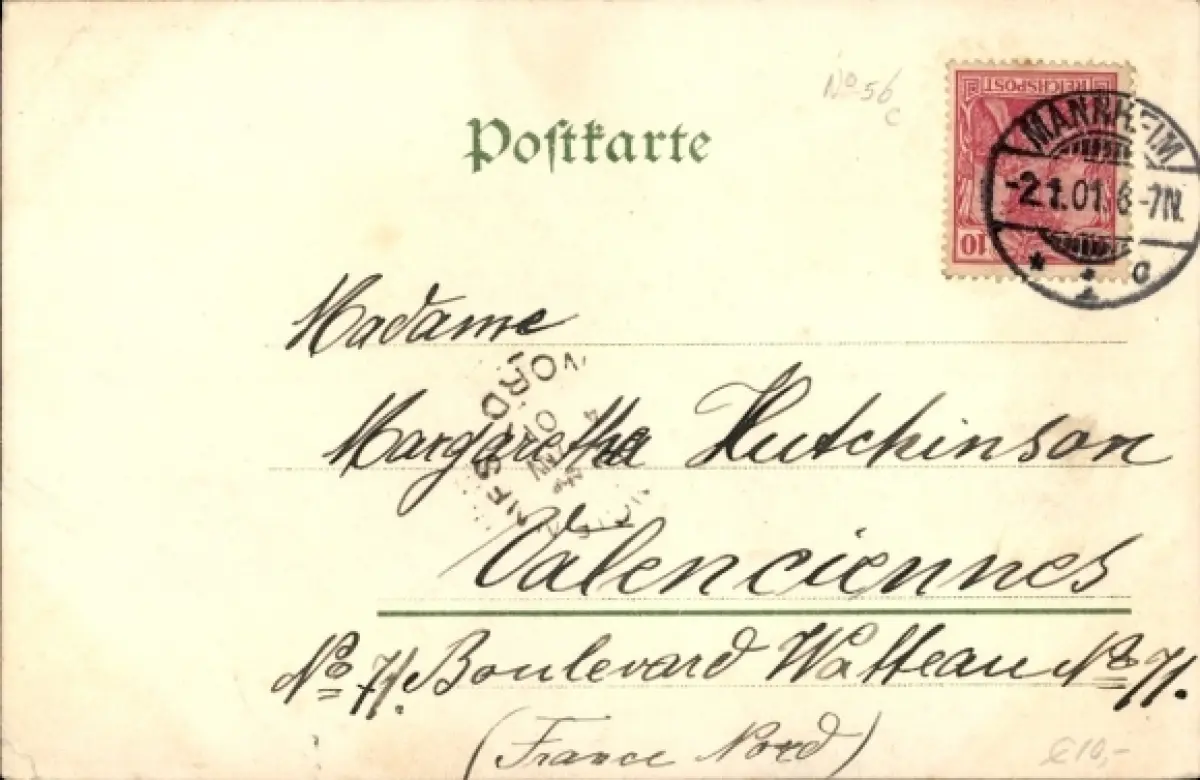 No 56
c
Postkarte
REICHSPOST
10
MANNHEIM
-2.1.01. 6-7N.
* 1 c
Madame
Margaretha Hutchinson
Valenciennes
No 71. Boulevard Watteau No 71.
(France Nord)
NORD
4
JANV
01
€10,-